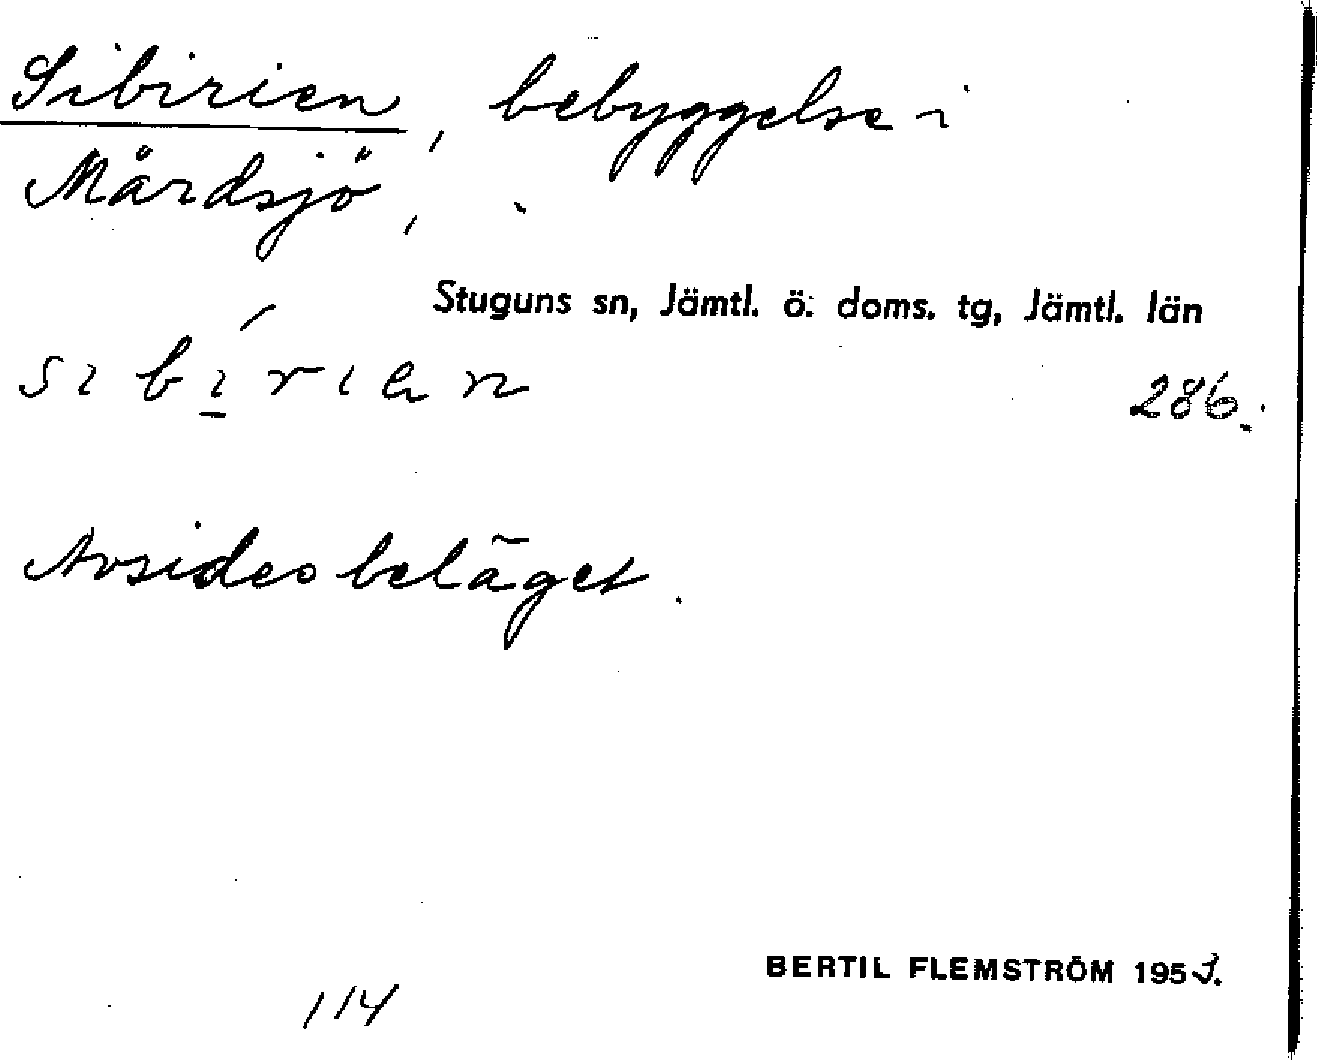 Sibirien, bebyggelse i
Mårdsjö,
Stuguns sn, Jämtl. ö. doms. tg, Jämtl. län
sibírian
286.
Avsides beläget.
BERTIL FLEMSTRÖM 1953.
114